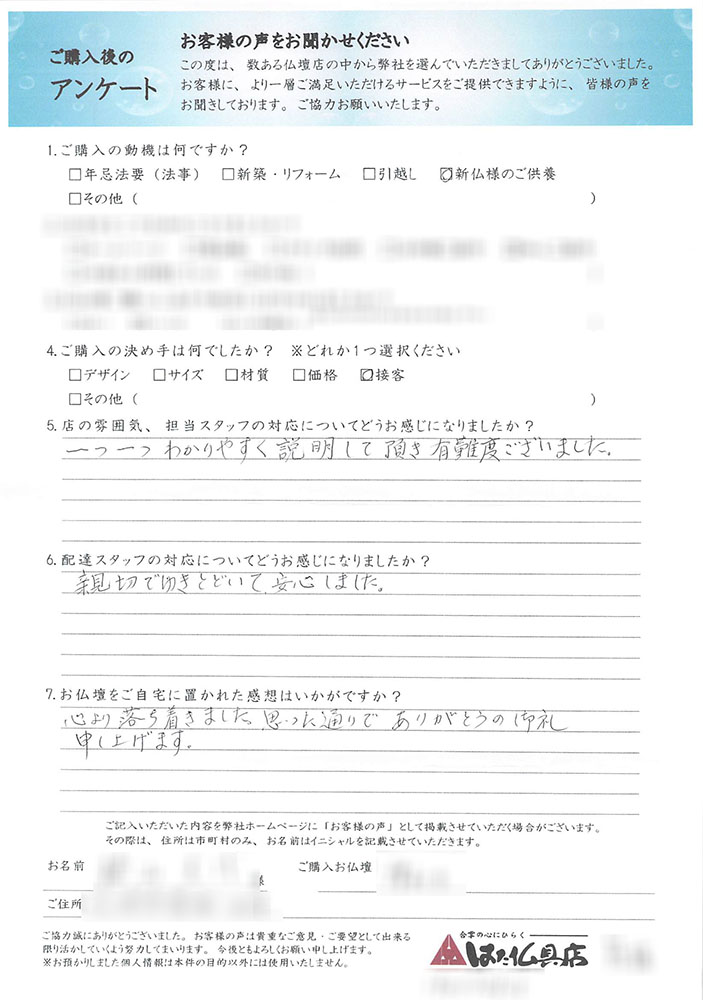 ご購入後の
アンケート
お客様の声をお聞かせください
この度は、数ある仏壇店の中から弊社を選んでいただきましてありがとうございました。
お客様に、より一層ご満足いただけるサービスをご提供できますように、皆様の声を
お聞きしております。ご協力お願いいたします。
1.ご購入の動機は何ですか？
□年忌法要（法事） □新築・リフォーム □引越し ☑新仏様のご供養
□その他（ ）
4.ご購入の決め手は何でしたか？ ※どれか1つ選択ください
□デザイン □サイズ □材質 □価格 ☑接客
□その他（ ）
5.店の雰囲気、担当スタッフの対応についてどうお感じになりましたか？
一つ一つわかりやすく説明して頂き有難度ございました。
6.配達スタッフの対応についてどうお感じになりましたか？
親切でゆきとどいて、安心しました。
7.お仏壇をご自宅に置かれた感想はいかがですか？
心より落ち着きました。思った通りでありがとうの御礼
申し上げます。
ご記入いただいた内容を弊社ホームページに「お客様の声」として掲載させていただく場合がございます。
その際は、住所は市町村のみ、お名前はイニシャルを記載させていただきます。
お名前 様 ご購入お仏壇
ご住所
ご協力誠にありがとうございました。お客様の声は貴重なご意見・ご要望として出来る
限り活かしていくよう努力してまいります。今後ともよろしくお願い申し上げます。
※お預かりしました個人情報は本件の目的以外には使用いたしません。
合掌の心にひらく
はた仏具店